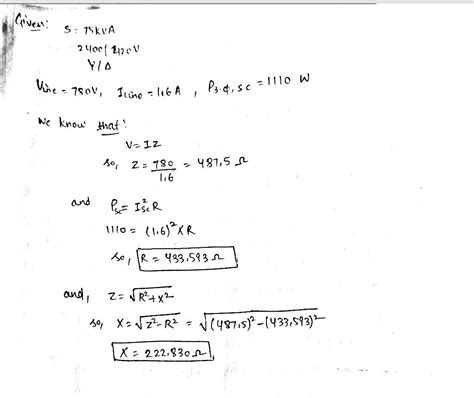 Given: S = 75KVA
2400/240V
Y/Δ
Vline = 780V, Iline = 1.6A, P3-ϕ,sc = 1110 W
We know that:
V = IZ
so, Z = 780/1.6 = 487.5 Ω
and Psc = I²sc R
1110 = (1.6)² × R
so, R = 433.593 Ω
and, Z = √R²+X²
so, X = √Z²-R² = √(487.5)²-(433.593)²
X = 222.830 Ω